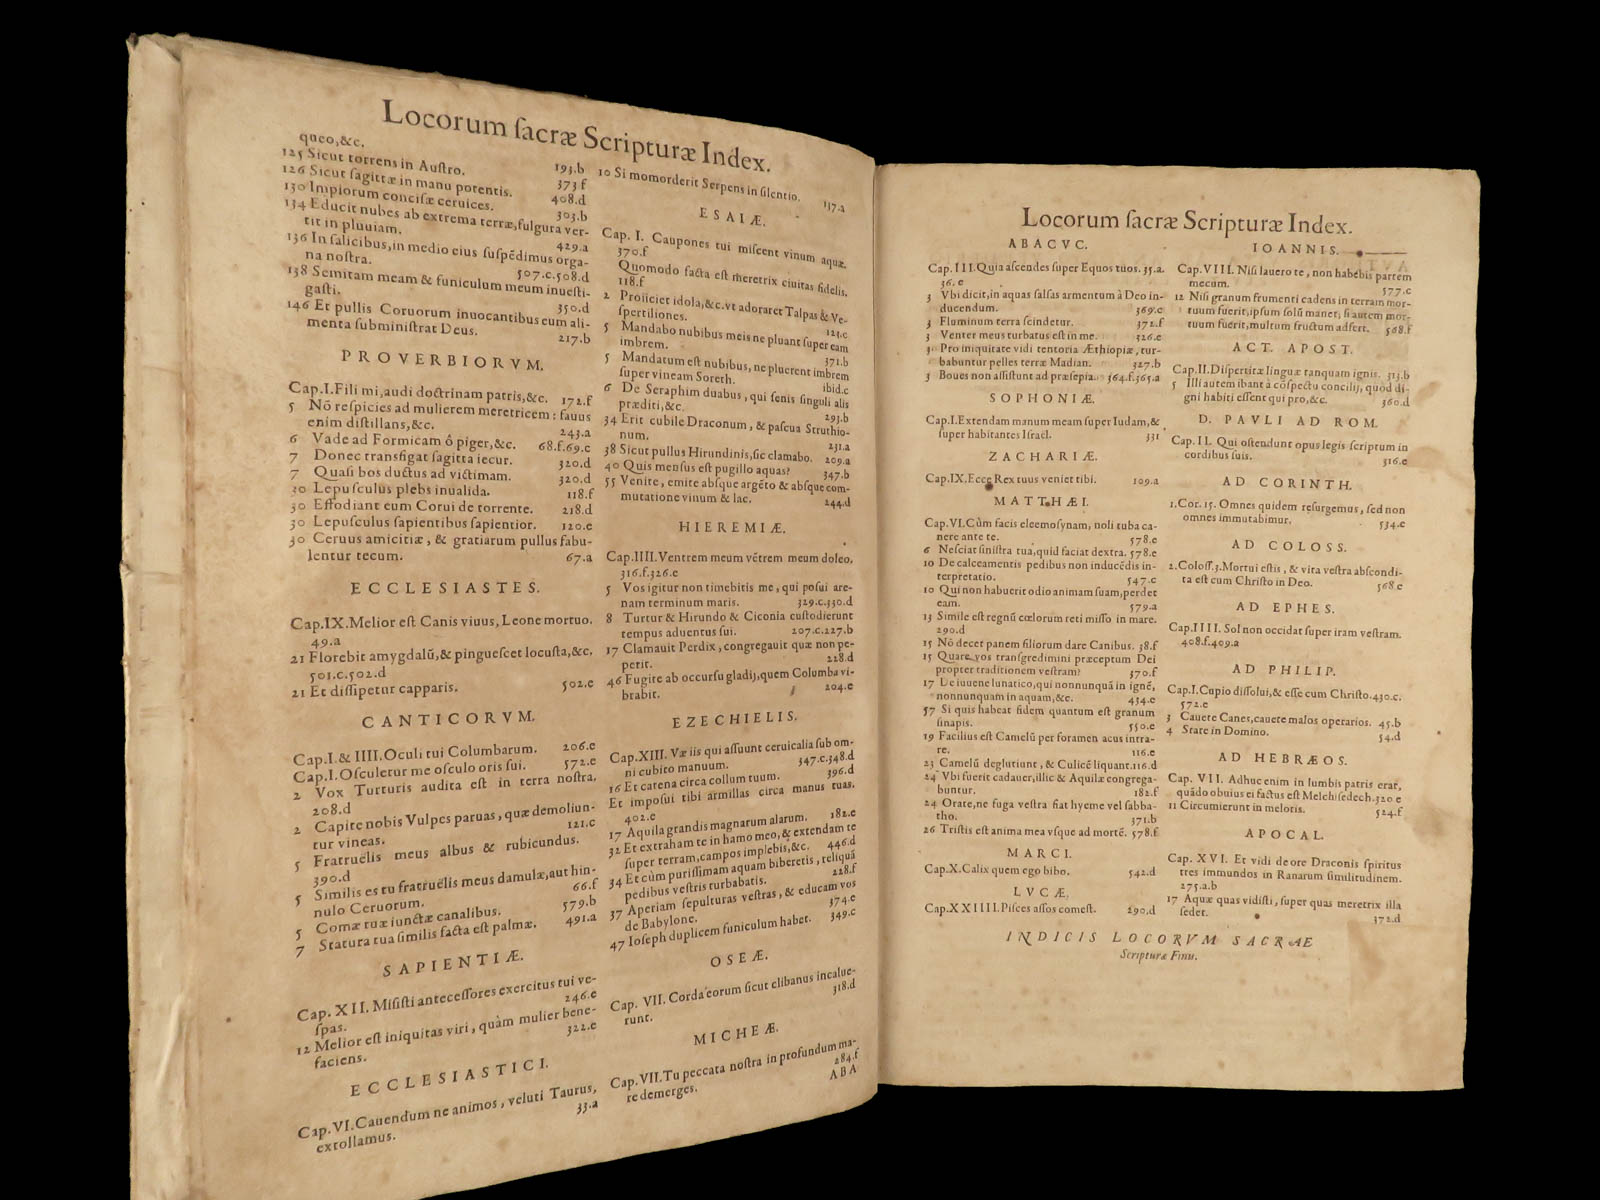 Locorum ſacræ Scripturæ Index.
queo,&c.
125 Sicut torrens in Auſtro. 193.b
126 Sicut ſagittæ in manu potentis. 373 f
130 Impiorum conciſæ ceruices. 408.d
134 Educit nubes ab extrema terræ,fulgura ver- 303.b
tit in pluuiam. 429.a
136 In ſalicibus,in medio eius ſuſpēdimus orga-
na noſtra. 507.c.508.d
138 Semitam meam & funiculum meum inueſti-
gaſti. 350.d
146 Et pullis Coruorum inuocantibus eum ali-
menta ſubminiſtrat Deus. 217.b
PROVERBIORVM.
Cap.I.Fili mi,audi doctrinam patris,&c. 172.f
5 Nō reſpicies ad mulierem meretricem : fauus
enim diſtillans,&c. 243.a
6 Vade ad Formicam ô piger,&c. 68.f.69.c
7 Donec transfigat ſagitta iecur. 320.d
7 Quaſi bos ductus ad victimam. 320.d
30 Lepuſculus plebs inualida. 118.f
30 Effodiant eum Corui de torrente. 218.d
30 Lepuſculus ſapientibus ſapientior. 120.e
30 Ceruus amicitiæ, & gratiarum pullus fabu-
lentur tecum. 67.a
ECCLESIASTES.
Cap.IX.Melior eſt Canis viuus, Leone mortuo.
49.a
21 Florebit amygdalū,& pingueſcet locuſta,&c.
501.c.502.d
21 Et diſſipetur capparis. 502.e
CANTICORVM.
Cap.I.& IIII.Oculi tui Columbarum. 206.e
Cap.I.Oſculetur me oſculo oris ſui. 572.e
2 Vox Turturis audita eſt in terra noſtra.
208.d
2 Capite nobis Vulpes paruas, quæ demoliun-
tur vineas. 121.c
5 Fratruëlis meus albus & rubicundus.
390.d
5 Similis es tu fratruëlis meus damulæ,aut hin-
nulo Ceruorum. 66.f
5 Comæ tuæ iunctæ canalibus. 579.b
7 Statura tua ſimilis facta eſt palmæ. 491.a
SAPIENTIÆ.
Cap. XII. Miſiſti anteceſſores exercitus tui ve-
ſpas. 246.e
12 Melior eſt iniquitas viri, quàm mulier bene-
faciens. 322.e
ECCLESIASTICI.
Cap.VI.Cauendum ne animos, veluti Taurus,
extollamus. 33.a
10 Si momorderit Serpens in ſilentio. 137.a
ESAIÆ.
Cap. I. Caupones tui miſcent vinum aquæ.
370.f
Quomodo facta eſt meretrix ciuitas fidelis.
118.f
2 Proiiciet idola,&c.vt adoraret Talpas & Ve-
ſpertiliones. 123.c
5 Mandabo nubibus meis ne pluant ſuper eam
imbrem. 371.b
5 Mandatum eſt nubibus, ne pluerent imbrem
ſuper vineam Soreth. ibid.c
6 De Seraphim duabus, qui ſenis ſinguli alis
præditi,&c. 293.b
34 Erit cubile Draconum, & paſcua Struthio-
num. 231.a
38 Sicut pullus Hirundinis,ſic clamabo. 209.a
40 Quis menſus eſt pugillo aquas? 347.b
55 Venite, emite abſque argēto & abſque com-
mutatione vinum & lac. 244.d
HIEREMIÆ.
Cap.IIII.Ventrem meum vētrem meum doleo.
316.f.326.e
5 Vos igitur non timebitis me, qui poſui are-
nam terminum maris. 329.c.330.d
8 Turtur & Hirundo & Ciconia cuſtodierunt
tempus aduentus ſui. 207.c.227.b
17 Clamauit Perdix, congregauit quæ non pe-
perit. 228.d
46 Fugite ab occurſu gladij,quem Columba vi-
brabit. 204.e
EZECHIELIS.
Cap.XIII. Væ iis qui aſſuunt ceruicalia ſub om-
ni cubito manuum. 347.c.348.d
16 Et catena circa collum tuum. 396.d
Et impoſui tibi armillas circa manus tuas.
402.e
17 Aquila grandis magnarum alarum. 182.e
32 Et extraham te in hamo meo,& extendam te
ſuper terram,campos implebis,&c. 446.d
34 Et cùm puriſſimam aquam biberetis, reliquā
pedibus veſtris turbabatis. 228.f
37 Aperiam ſepulturas veſtras, & educam vos
de Babylone. 374.e
47 Ioſeph duplicem funiculum habet. 349.c
OSEÆ.
Cap. VII. Corda eorum ſicut clibanus incalue-
runt. 318.d
MICHEÆ.
Cap.VII.Tu peccata noſtra in profundum ma-
re demerges. 284.f
ABA
Locorum ſacræ Scripturæ Index.
ABACVC.
Cap.III.Quia aſcendes ſuper Equos tuos. 35.a.
36.e
3 Vbi dicit,in aquas ſalſas armentum à Deo in-
ducendum. 369.c
3 Fluminum terra ſcindetur. 372.f
3 Venter meus turbatus eſt in me. 326.e
3 Pro iniquitate vidi tentoria Æthiopiæ, tur-
babuntur pelles terræ Madian. 327.b
3 Boues non aſſiſtunt ad præſepia. 364.f.365.a
SOPHONIÆ.
Cap.I.Extendam manum meam ſuper Iudam,&
ſuper habitantes Iſraël. 331
ZACHARIÆ.
Cap.IX.Ecce Rex tuus veniet tibi. 109.a
MATTHÆI.
Cap.VI.Cùm facis eleemoſynam, noli tuba ca-
nere ante te. 578.e
6 Neſciat ſiniſtra tua,quid faciat dextra. 578.e
10 De calceamentis pedibus non inducēdis in-
terpretatio. 547.c
10 Qui non habuerit odio animam ſuam,perdet
eam. 579.a
13 Simile eſt regnū cœlorum reti miſſo in mare.
290.d
15 Nō decet panem filiorum dare Canibus. 38.f
15 Quare vos tranſgredimini præceptum Dei
propter traditionem veſtram? 570.f
17 De iuuene lunatico,qui nonnunquā in ignē,
nonnunquam in aquam,&c. 434.e
57 Si quis habeat fidem quantum eſt granum
ſinapis. 550.e
19 Facilius eſt Camelū per foramen acus intra-
re. 116.e
23 Camelū deglutiunt, & Culicē liquant.116.d
24 Vbi fuerit cadauer,illic & Aquilæ congrega-
buntur. 182.f
24 Orate,ne fuga veſtra fiat hyeme vel ſabba-
tho. 371.b
26 Triſtis eſt anima mea vſque ad mortē. 578.f
MARCI.
Cap.X.Calix quem ego bibo. 542.d
LVCÆ.
Cap.XXIIII.Piſces aſſos comeſt. 290.d
IOANNIS.
Cap.VIII. Niſi lauero te, non habebis partem
mecum. 577.c
12 Niſi granum frumenti cadens in terram mor-
tuum fuerit,ipſum ſolū manet; ſi autem mor-
tuum fuerit,multum fructum adfert. 568.f
ACT. APOST.
Cap.II.Diſpertitæ linguæ tanquam ignis. 313.b
5 Illi autem ibant à cōſpectu concilij, quòd di-
gni habiti eſſent qui pro,&c. 360.d
D. PAVLI AD ROM.
Cap. II. Qui oſtendunt opus legis ſcriptum in
cordibus ſuis. 316.e
AD CORINTH.
1.Cor. 15. Omnes quidem reſurgemus, ſed non
omnes immutabimur. 534.e
AD COLOSS.
2.Coloſſ.3.Mortui eſtis, & vita veſtra abſcondi-
ta eſt cum Chriſto in Deo. 568.e
AD EPHES.
Cap.IIII. Sol non occidat ſuper iram veſtram.
408.f.409.a
AD PHILIP.
Cap.I.Cupio diſſolui,& eſſe cum Chriſto.430.c.
572.e
3 Cauete Canes,cauete malos operarios. 45.b
4 Stare in Domino. 54.d
AD HEBRÆOS.
Cap. VII. Adhuc enim in lumbis patris erat,
quādo obuius ei factus eſt Melchiſedech.320 e
11 Circumierunt in melotis. 524.f
APOCAL.
Cap. XVI. Et vidi de ore Draconis ſpiritus
tres immundos in Ranarum ſimilitudinem.
275.a.b
17 Aquæ quas vidiſti, ſuper quas meretrix illa
ſedet. 372.d
INDICIS LOCORVM SACRAE
Scripturæ Finis.